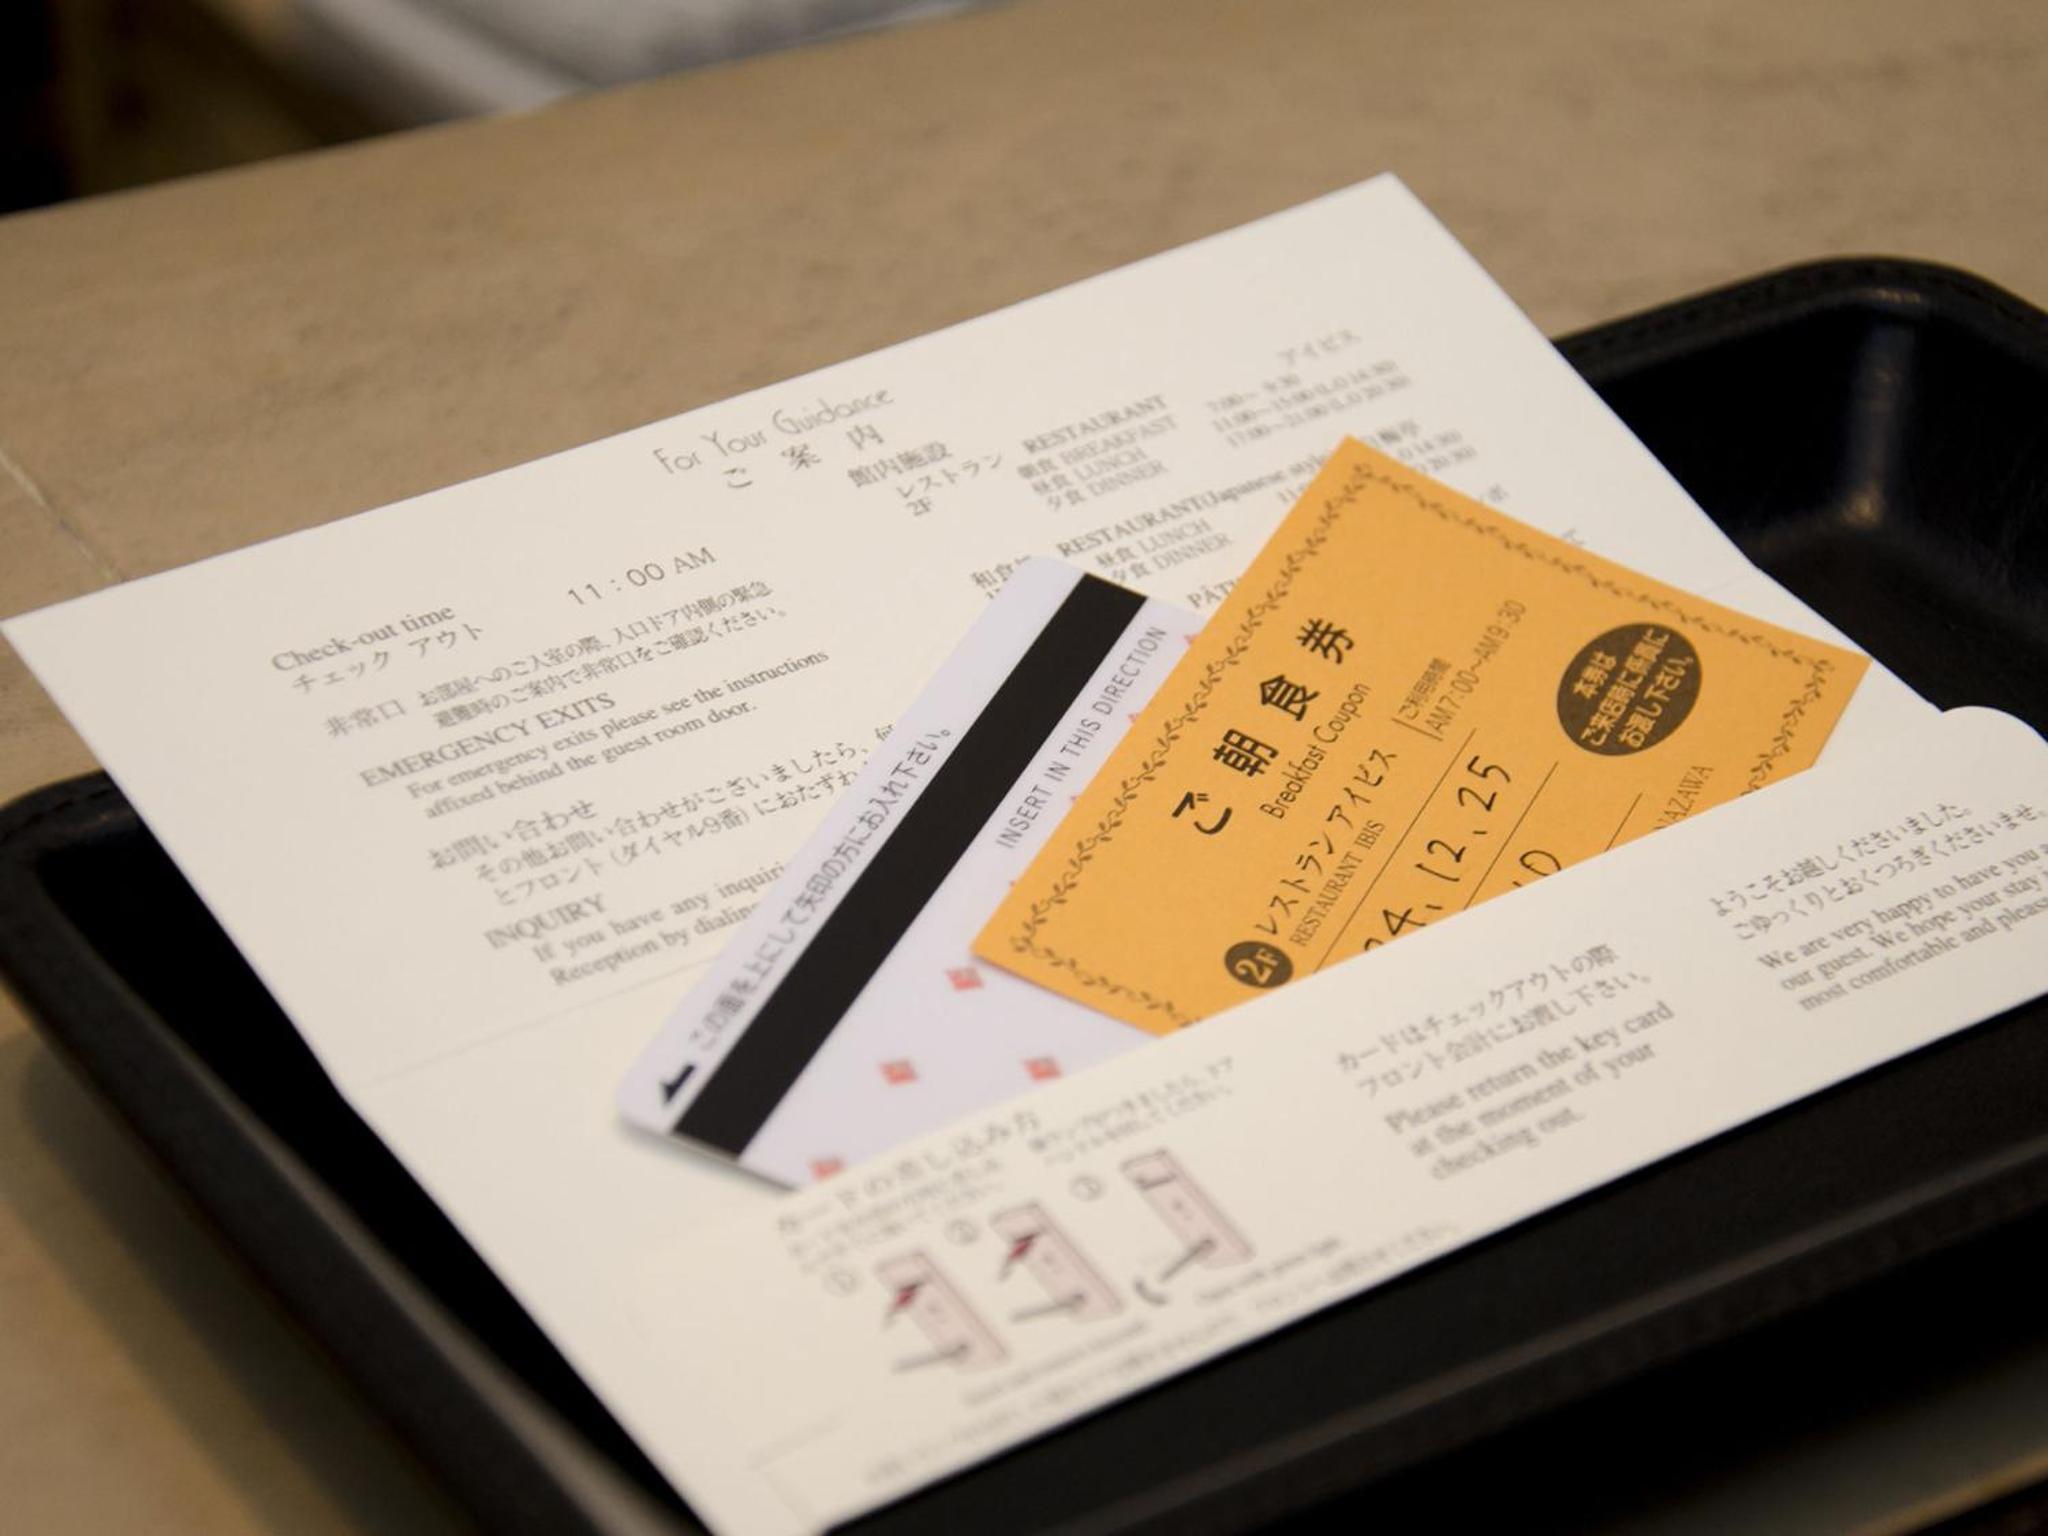 For Your Guidance
ご案内
Check-out time 11:00 AM
チェック アウト
非常口 お部屋へのご入室の際、入口ドア内側の緊急
避難時のご案内で非常口をご確認ください。
EMERGENCY EXITS
For emergency exits please see the instructions
affixed behind the guest room door.
お問い合わせ
その他お問い合わせがございましたら、何
とフロント(ダイヤル9番)におたずね
INQUIRY
If you have any inquiri
Reception by dialing
館内施設
レストラン
2F
RESTAURANT アイビス
朝食 BREAKFAST 7:00~ 9:30
昼食 LUNCH 11:00~15:00 (L.O 14:30)
夕食 DINNER 17:00~21:00 (L.O 20:30)
和食
RESTAURANT(Japanese style)
昼食 LUNCH
夕食 DINNER
PÂTI
この面を上にして矢印の方にお入れ下さい。
INSERT IN THIS DIRECTION
ご朝食券
Breakfast Coupon
ご利用時間
AM7:00~AM9:30
2F レストラン アイビス
RESTAURANT IBIS
24、12、25
10
NAZAWA
本券は
ご来店時に係員に
お渡し下さい。
カードの差し込み方
①
②
③
カードはチェックアウトの際
フロント会計にお渡し下さい。
Please return the key card
at the moment of your
checking out.
ようこそお越しくださいました。
ごゆっくりとおくつろぎくださいませ。
We are very happy to have you a
our guest. We hope your stay i
most comfortable and please